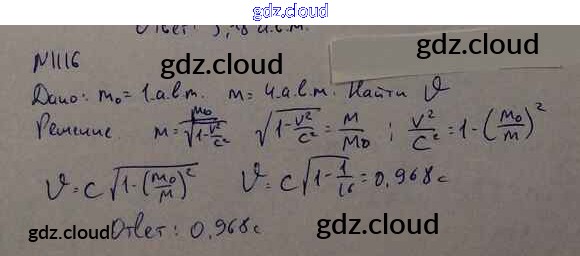 gdz.cloud
Ответ: 5,48 а.е.м.
N1116
gdz.cloud
gdz.cloud
Дано: m₀ = 1 а.е.м. m = 4 а.е.м. Найти v
Решение. m = m₀/√(1-v²/c²) √(1-v²/c²) = m/m₀ ; v²/c² = 1-(m₀/m)²
v = c√(1-(m₀/m)²) v = c√(1-1/16) = 0,968c
gdz.cloud Ответ: 0,968c gdz.cloud